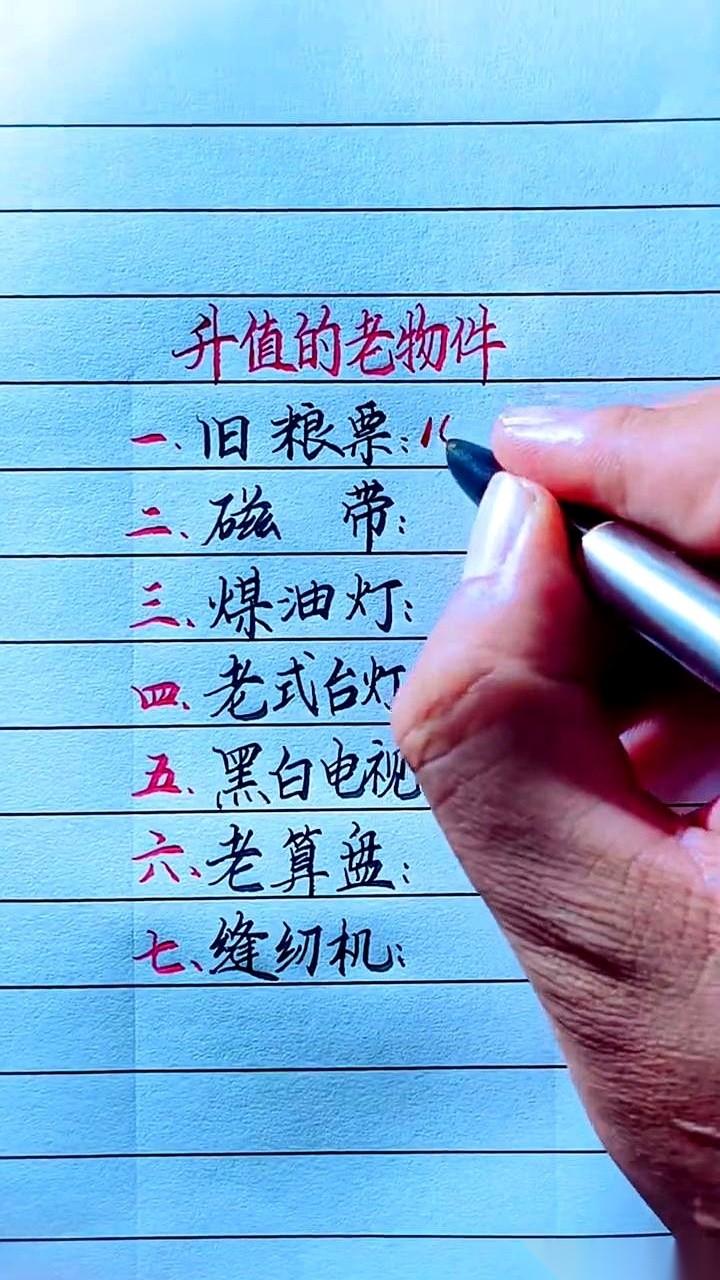 升值的老物件
一、旧粮票:1
二、磁带:
三、煤油灯:
四、老式台灯
五、黑白电视
六、老算盘:
七、缝纫机: